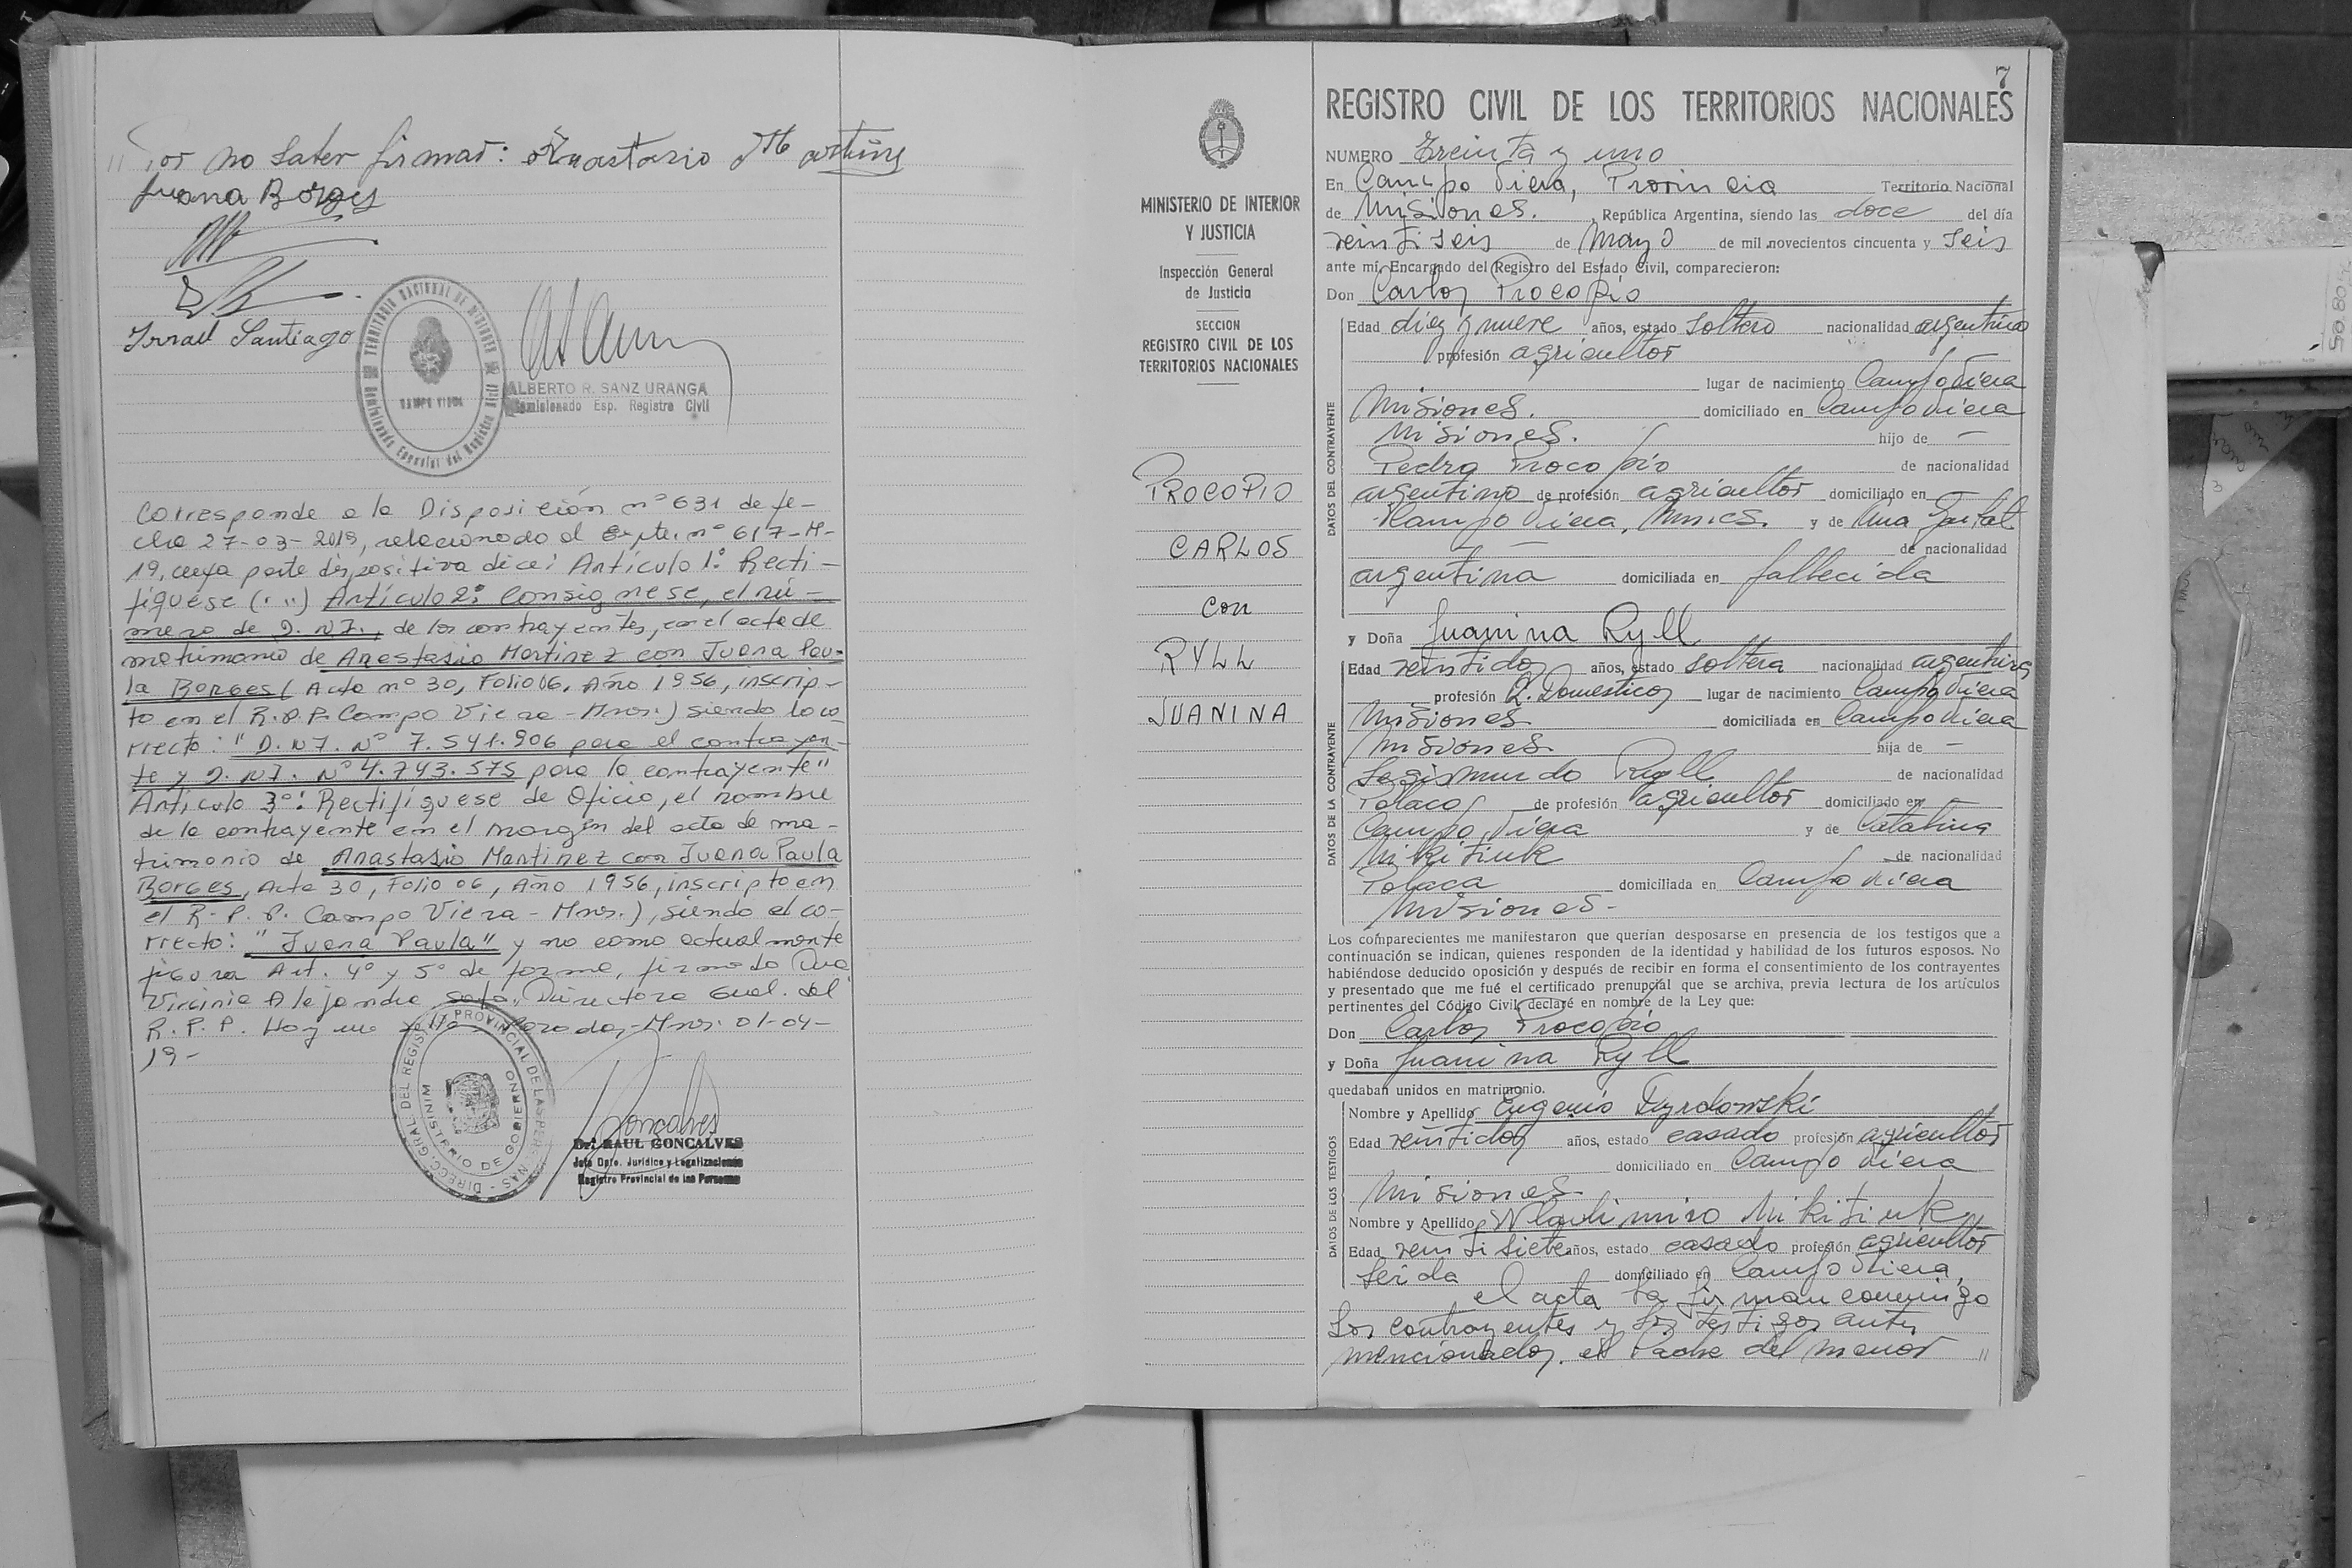 " Por no saber firmar: Anastasio Martinez
Juana Borges
Israel Santiago
TERRITORIO NACIONAL DE MISIONES
CAMPO VIERA
Comisionado Especial del Registro Civil
ALBERTO R. SANZ URANGA
Comisionado Esp. Registro Civil
Corresponde a la Disposición nº 631 de fe-
cha 27-03-2019, relacionado al Expte. nº 617-M-
19, cuya parte dispositiva dice: Artículo 1º: Recti-
fíquese (...) Artículo 2º: Consígnese, el nú-
mero de D.N.I., de los contrayentes, en el acta de
matrimonio de Anastasio Martinez con Juana Pau-
la Borges (Acta nº 30, Folio 06, Año 1956, inscrip-
to en el R.P.P. Campo Viera - Mnes.) siendo lo co-
rrecto: "D.N.I. Nº 7.541.906 para el contrayen-
te y D.N.I. Nº 4.743.575 para la contrayente"
Artículo 3º: Rectifíquese de Oficio, el nombre
de la contrayente en el margen del acta de ma-
trimonio de Anastasio Martinez con Juana Paula
Borges, Acta 30, Folio 06, Año 1956, inscripto en
el R.P.P. Campo Viera - Mnes.), siendo el co-
rrecto: "Juana Paula" y no como actualmente
figura Art. 4º y 5º de forma, firmado Dra
Virginia Alejandra Directora Gral. del
R.P.P. Hoy Posadas, Mnes. 01-04-
19-
DIRECC. GRAL DEL REGISTRO PROVINCIAL DE LAS PERSONAS
MINISTERIO DE GOBIERNO
Goncalves
Dr. RAUL GONCALVES
Jefe Dpto. Jurídico y Legalizaciones
Registro Provincial de las Personas
7
MINISTERIO DE INTERIOR
Y JUSTICIA
Inspección General
de Justicia
SECCION
REGISTRO CIVIL DE LOS
TERRITORIOS NACIONALES
PROCOPIO
CARLOS
con
RYLL
JUANINA
REGISTRO CIVIL DE LOS TERRITORIOS NACIONALES
NUMERO Treinta y uno
En Campo Viera, Provincia Territorio Nacional
de Misiones. , República Argentina, siendo las doce del día
veintiseis de Mayo de mil novecientos cincuenta y seis
ante mí, Encargado del Registro del Estado Civil, comparecieron:
Don Carlos Procopio
DATOS DEL CONTRAYENTE
Edad diez y nueve años, estado soltero nacionalidad argentino
profesión agricultor
lugar de nacimiento Campo Viera
Misiones. domiciliado en Campo Viera
Misiones. hijo de -
Pedro Procopio de nacionalidad
argentino de profesión agricultor domiciliado en -
Campo Viera, Mnes. y de Ana
de nacionalidad
argentina domiciliada en fallecida
y Doña Juanina Ryll
DATOS DE LA CONTRAYENTE
Edad veintidos años, estado soltera nacionalidad argentina
profesión Q. Domesticos lugar de nacimiento Campo Viera
Misiones domiciliada en Campo Viera
Misiones hija de -
Segismundo Ryll de nacionalidad
Polaco de profesión agricultor domiciliado en -
Campo Viera y de Catalina
Mikitiuk de nacionalidad
Polaca domiciliada en Campo Viera
Misiones-
Los comparecientes me manifestaron que querían desposarse en presencia de los testigos que a
continuación se indican, quienes responden de la identidad y habilidad de los futuros esposos. No
habiéndose deducido oposición y después de recibir en forma el consentimiento de los contrayentes
y presentado que me fué el certificado prenupcial que se archiva, previa lectura de los artículos
pertinentes del Código Civil, declaré en nombre de la Ley que:
Don Carlos Procopio
y Doña Juanina Ryll
quedaban unidos en matrimonio.
DATOS DE LOS TESTIGOS
Nombre y Apellido Eugenio Dyrdowski
Edad veintidos años, estado casado profesión agricultor
domiciliado en Campo Viera
Misiones
Nombre y Apellido Wladimiro Mikitiuk
Edad veintisiete años, estado casado profesión agricultor
domiciliado en Campo Viera,
Leida el acta la firman conmigo
los contrayentes y los testigos antes
mencionados, el Padre del menor "